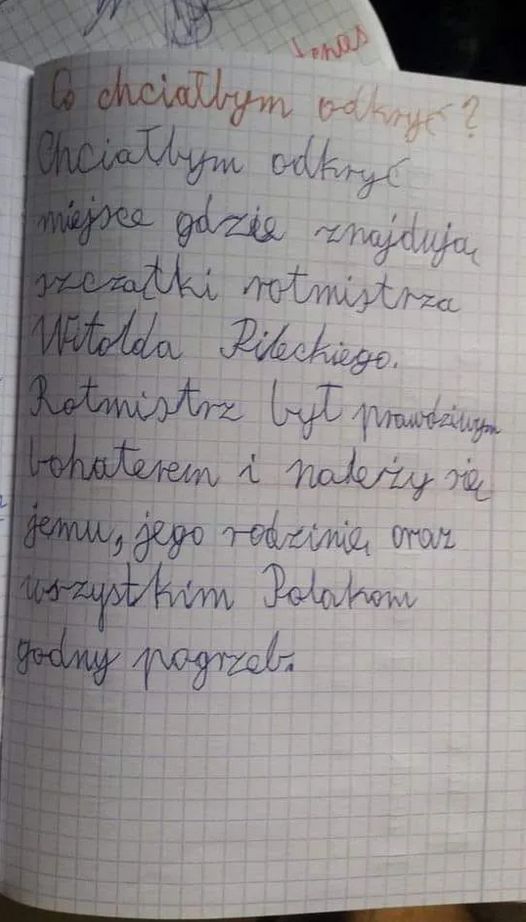 Jonas
Co chciałbym odkryć?
Chciałbym odkryć
miejsce gdzie znajdują
szczątki rotmistrza
Witolda Pileckiego.
Rotmistrz był prawdziwym
bohaterem i należy się
jemu, jego rodzinie oraz
wszystkim Polakom
godny pogrzeb.